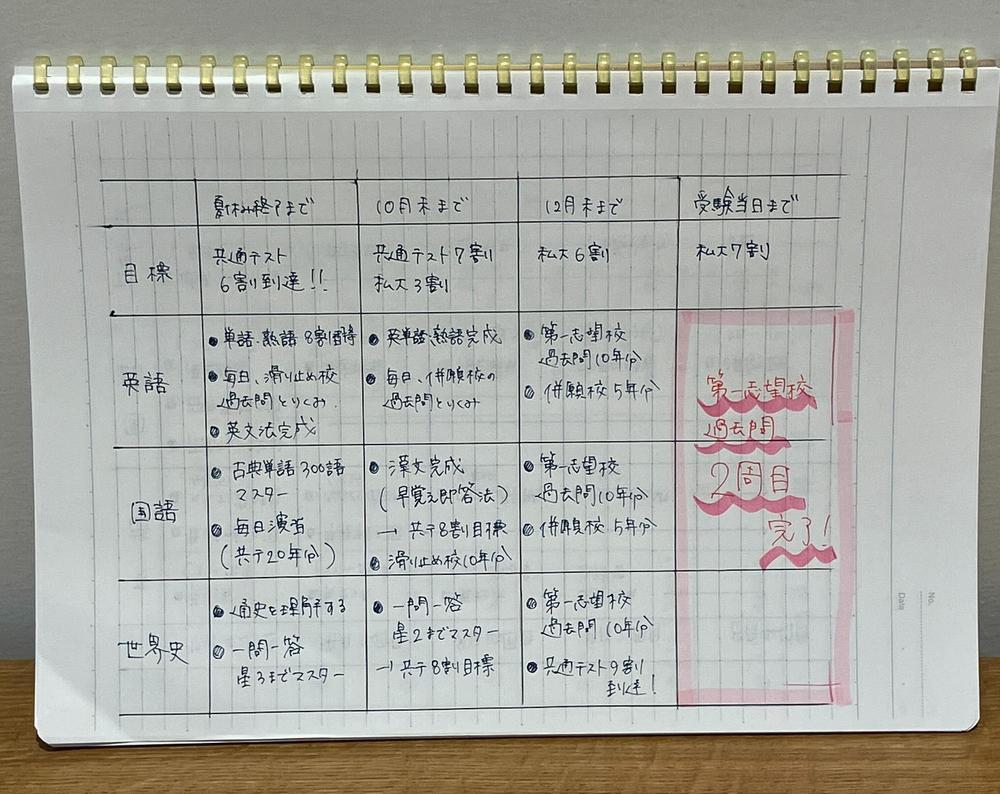 夏休み終了まで
10月末まで
12月末まで
受験当日まで
目標
共通テスト
6割り到達!!
共通テスト7割り
私大3割り
私大6割り
私大7割り
英語
● 単語、熟語 8割習得
● 毎日、滑り止め校
過去問とりくみ
● 英文法完成
● 英単語、熟語完成
● 毎日、併願校の
過去問とりくみ
● 第一志望校
過去問10年分
● 併願校5年分
国語
● 古典単語300語
マスター
● 毎日演習
(共テ20年分)
● 漢文完成
(早覚え即答法)
→ 共テ8割目標
● 滑り止め校10年分
● 第一志望校
過去問10年分
● 併願校5年分
世界史
● 通史を理解する
● 一問一答
星3までマスター
● 一問一答
星2までマスター
→ 共テ8割目標
● 第一志望校
過去問10年分
● 共通テスト9割り
到達!
第一志望校
過去問
2周目
完了!
No.
Date